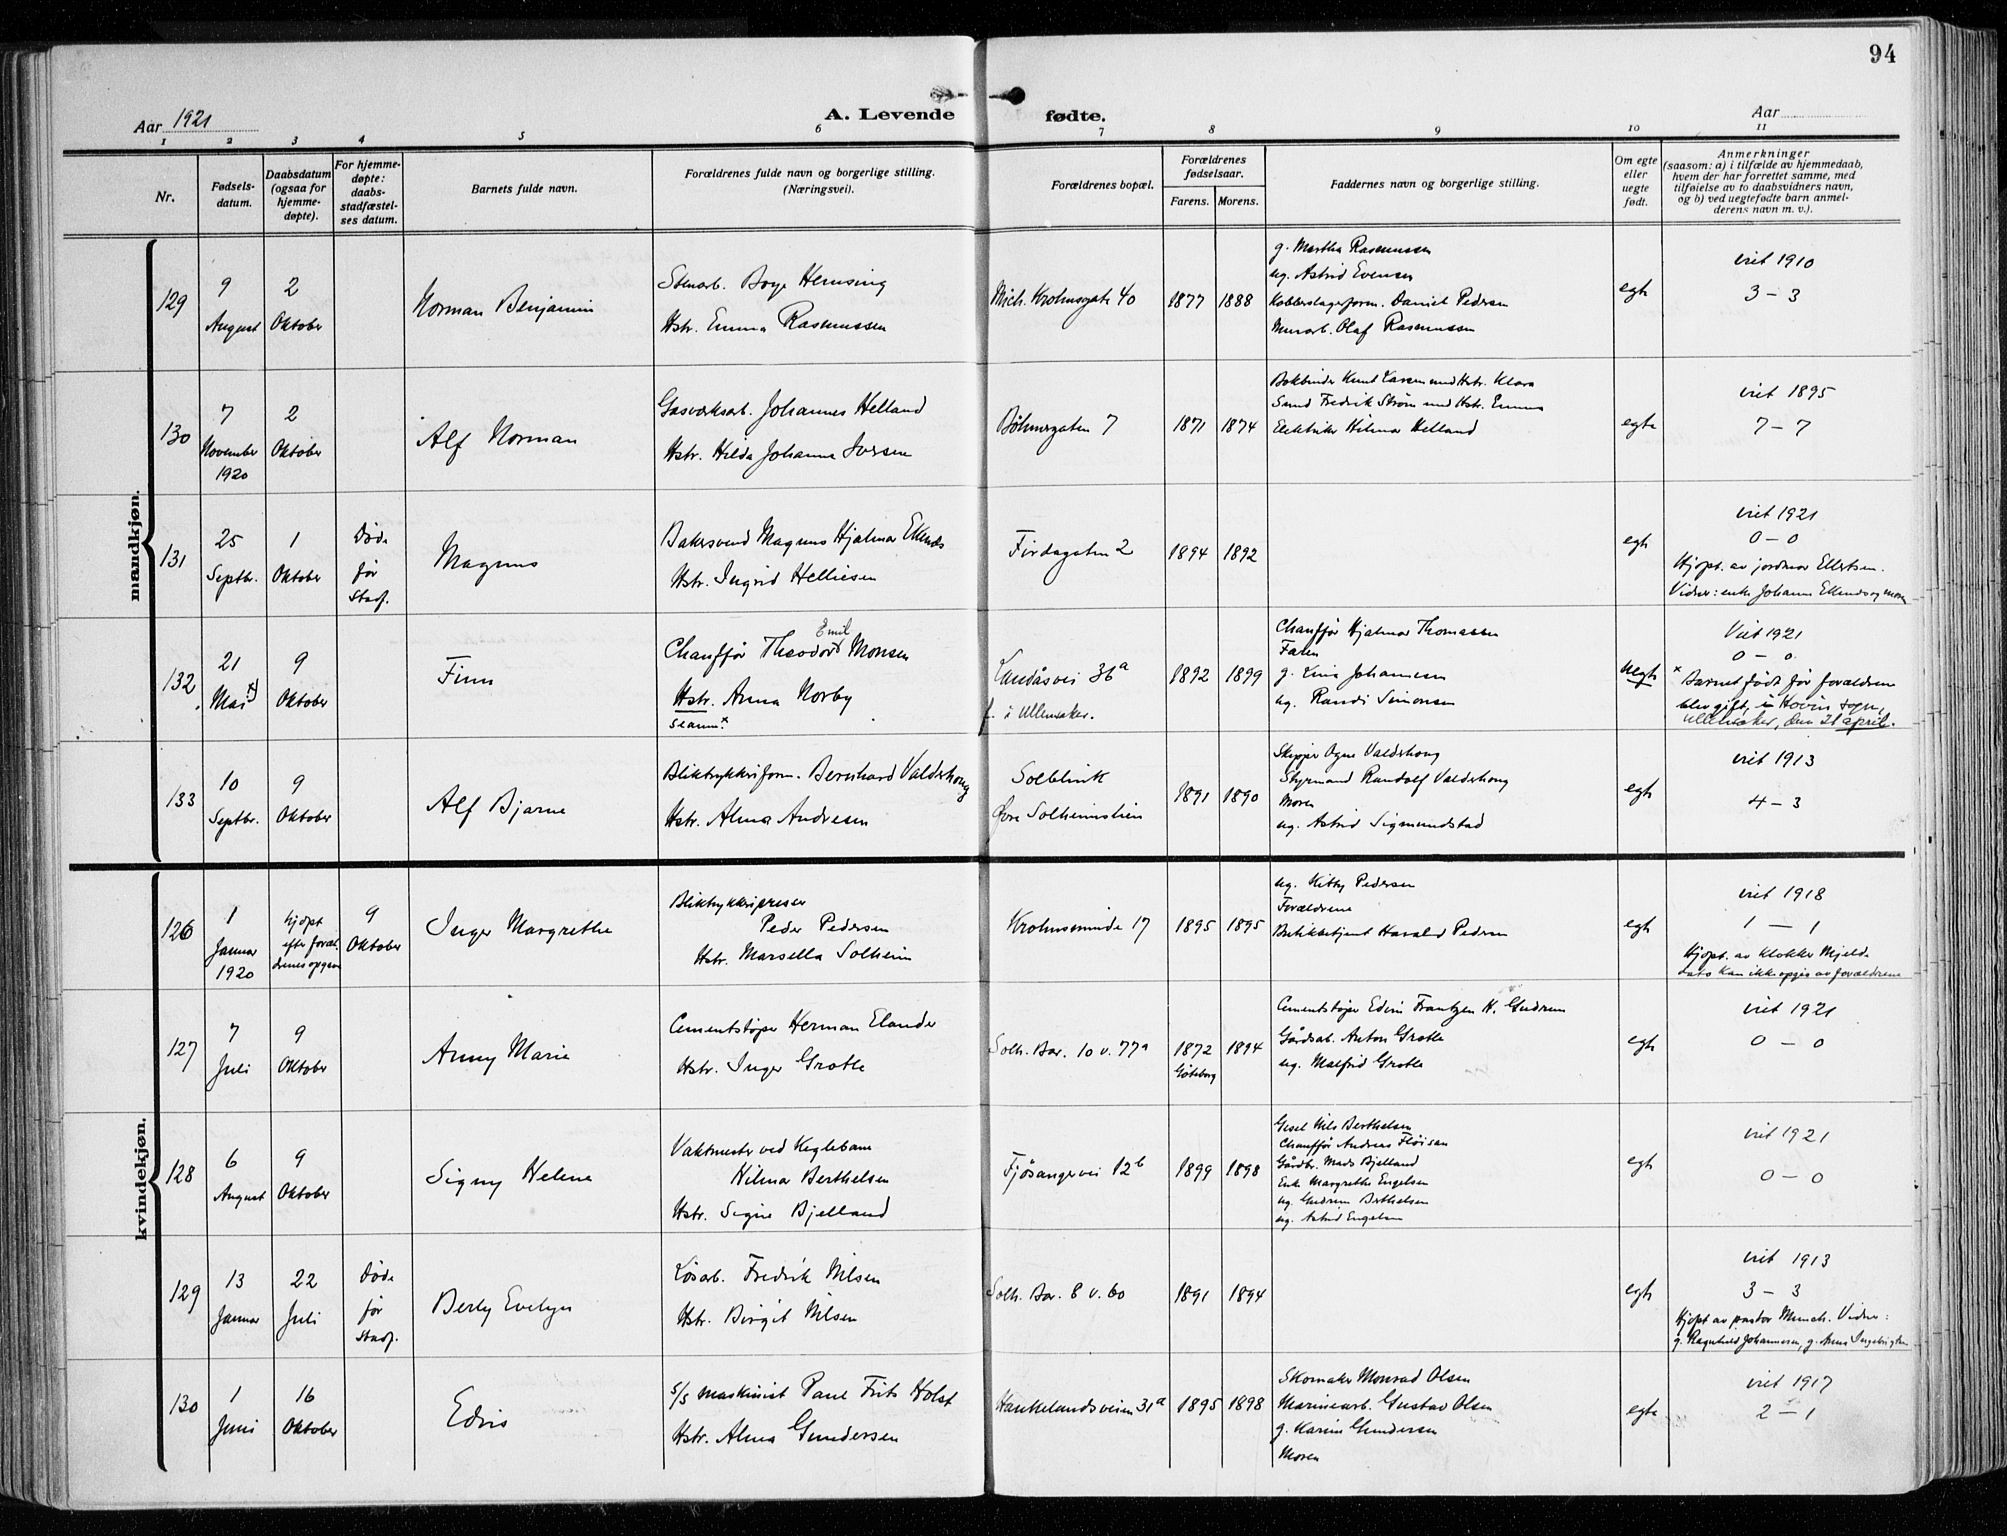 94
Aar 1921
A. Levende
fødte.
Aar
1 2 3 4 5 6 7 8 9 10 11
Nr.
Fødsels-
datum.
Daabsdatum
(ogsaa for
hjemme-
døpte).
For hjemme-
døpte:
daabs-
stadfæstel-
ses datum.
Barnets fulde navn.
Forældrenes fulde navn og borgerlige stilling.
(Næringsvei).
Forældrenes bopæl.
Forældrenes
fødselsaar.
Farens. Morens.
Faddernes navn og borgerlige stilling.
Om egte
eller
uegte
født.
Anmerkninger
(saasom: a) i tilfælde av hjemmedaab,
hvem der har forrettet samme, med
tilføielse av to daabsvidners navn,
og b) ved uegtefødte barn anmel-
derens navn m. v.).
mandkjøn.
129
9
August
2
Oktober
Norman Benjamin
Stenarb. Boye Hemsing
Hstr. Emma Rasmussen
Mich. Krohnsgate 40
1877 1888
g. Martha Rasmussen
ug. Astrid Evensen
Kobberslagerform. Daniel Pedersen
Murarb. Olaf Rasmussen
egte
viet 1910
3 - 3
130
7
November
1920
2
Oktober
Alf Norman
Gasverksarb. Johannes Helland
Hstr. Hilda Johanna Iversen
Bøhmergaten 7
1871 1874
Bokbinder Knut Larsen med Hstr. Klara
Smed Fredrik Strøm med Hstr. Emma
Elektriker Hilmar Helland
egte
viet 1895
7 - 7
131
25
Septbr.
1
Oktober
Døde
før
Stadf.
Magnus
Bakersvend Magnus Hjalmar Ellends
Hstr. Ingrid Helliesen
Firdagaten 2
1894 1892
egte
viet 1921
0 - 0
Hjdpt. av jordmor Ellertsen.
Vidner: enke Johanne Ellends og moren
132
21
Mai x)
9
Oktober
Finn
Emil
Chauffør Theodor Monsen
Hstr. Anna Norby
Landåsvei 36a
f. i Ullensaker.
1892 1899
Chauffør Hjalmar Thomassen
Faren
g. Lina Johannesen
ug. Randi Simonsen
uegte
Viet 1921
0 - 0
x Barnet født før forældrene
blev gift, i Hovin sogn,
Ullensaker, den 21 april.
133
10
Septbr.
9
Oktober
Alf Bjarne
Bliktrykkeriform. Bernhard Valderhoug
Hstr. Alma Andresen
Solblink
Øvre Solheimslien
1891 1890
Skipper Ogne Valderhoug
Styrmand Randolf Valderhoug
Moren
ug. Astrid Sigmundstad
egte
viet 1913
4 - 3
kvindekjøn.
126
1
Januar
1920
hjdpt
efter foræl-
drenes opgave
9
Oktober
Inger Margrethe
Bliktrykkeripresser
Peder Pedersen
Hstr. Marsella Solheim
Krohnsminde 17
1895 1895
ug. Kitty Pedersen
Forældrene
Butikbetjent Harald Pedersen
egte
viet 1918
1 - 1
Hjdpt. av klokker Mjelde
dato kan ikke opgis av forældrene
127
7
Juli
9
Oktober
Anny Marie
Cementstøper Herman Elander
Hstr. Inger Grotle
Solh. Bar. 10 v. 77a
1872
Göteborg
1894
Cementstøper Edvin Frantzen H. Gudrun
Gårdsab. Anton Grotle
ug. Malfrid Grotle
egte
viet 1921
0 - 0
128
6
August
9
Oktober
Signy Helene
Vaktmester ved Keglebane
Hilmar Berthelsen
Hstr. Signe Bjelland
Fjøsangervei 12b
1899 1898
Gesel Nils Berthelsen
Chauffør Andreas Fløisan
Gårdbr. Mads Bjelland
Enke Margrethe Engelsen
ug. Gudrun Berthelsen
ug. Astrid Engelsen
egte
viet 1921
0 - 0
129
13
Januar
22
Juli
Døde
før
Stadf.
Berly Evelyn
Løsarb. Fredrik Nilsen
Hstr. Birgit Nilsen
Solh. Bar. 8 v. 60
1891 1894
egte
viet 1913
3 - 3
Hjdpt av pastor Munch. Vidner:
g. Ragnhild Johannesen, g. Anna Ingebrigtsen
130
1
Juni
16
Oktober
Edvis
s/s maskinist Paul Frits Holst
Hstr. Alma Gundersen
Haukelandsveien 31a
1895 1898
Skomaker Monrad Olsen
Marinearb. Gustav Olsen
g. Karin Gundersen
Moren
egte
viet 1917
2 - 1